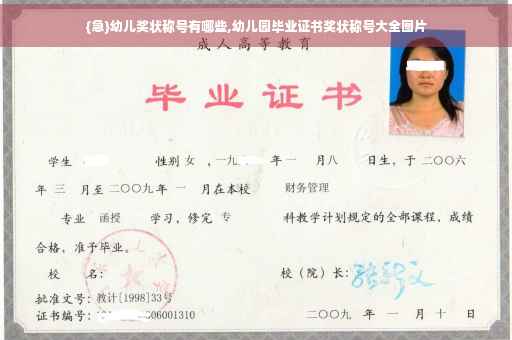 {急}幼儿奖状称号有哪些,幼儿园毕业证书奖状称号大全图片
成人高等教育
毕业证书
学生 性别 女 ，一九 年 一 月 八 日生，于 二〇〇六
年 三 月至 二〇〇九 年 一 月在本校 财务管理
专业 函授 学习，修完 专 科教学计划规定的全部课程，成绩
合格，准予毕业。
校 名： 校（院）长：
批准文号：教计[1998]33号
证书编号： 06001310 二〇〇九 年 一 月 十 日